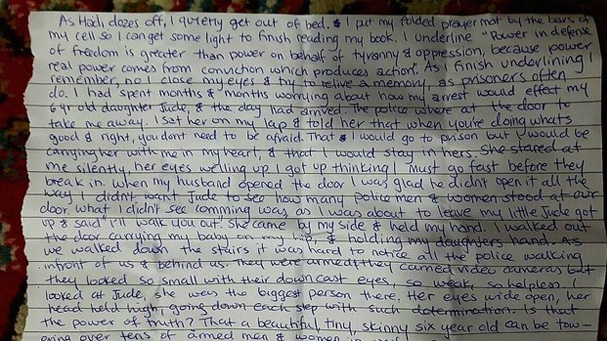 As Hadi dozes off, I quietly get out of bed. & I put my folded prayer mat by the bars of
my cell so I can get some light to finish reading my book. I underline "Power in defense
of freedom is greater than power on behalf of tyranny & oppression, because power
real power comes from conviction which produces action". As I finish underlining I
remember, no I close my eyes & try to relive a memory, as prisoners often
do. I had spent months & months worrying about how my arrest would effect my
6 yr old daughter Jude, & the day had arrived. The police where at the door to
take me away. I sat her on my lap & told her that when you're doing whats
good & right, you dont need to be afraid. That I would go to prison but I would be
carrying her with me in my heart, & that I would stay in hers. She stared at
me silently, her eyes welling up I got up thinking I must go fast before they
break in. When my husband opened the door I was glad he didnt open it all the
way I didn't want Jude to see how many police men & women stood at our
door. What I didn't see comming was, as I was about to leave my little Jude got
up & said I'll walk you out. She came by my side & held my hand. I walked out
the door carrying my baby on my hip, & holding my daughters hand. As
we walked down the stairs it was hard to notice all the police walking
infront of us & behind us. They were armed, they carried video cameras but
they looked so small with their down cast eyes, so weak, so helpless I
looked at Jude, she was the biggest person there. Her eyes wide open, her
head held high, going down each step with such determination. Is that
the power of truth? That a beautiful, tiny, skinny six year old can be tow-
ering over tens of armed men & women